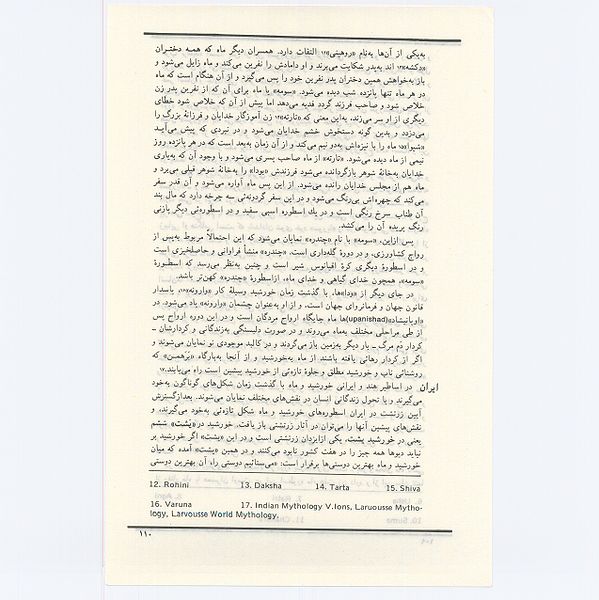 به‌یکی از آن‌ها به‌نام «روهینی»۱۲ التفات دارد. همسران دیگر ماه که همه دختران
«دکشه»۱۳ اند به‌پدر شکایت می‌برند و او دامادش را نفرین می‌کند و ماه زایل می‌شود و
باز به‌خواهش همین دختران پدر نفرین خود را پس می‌گیرد و از آن هنگام است که ماه
در هر ماه تنها پانزده شب دیده می‌شود. «سومه» یا ماه برای آن که از نفرین پدر زن
خلاص شود و صاحب فرزند گردد فدیه می‌دهد اما پیش از آن که خلاص شود خطای
دیگری از او سر می‌زند، به‌این معنی که «تارته»۱۴ زن آموزگار خدایان و فرزانهٔ بزرگ را
می‌دزدد و بدین گونه دستخوش خشم خدایان می‌شود و در نبردی که پیش می‌آید
«شیوا»۱۵ ماه را با نیزه‌اش به‌دو نیم می‌کند و از آن زمان به‌بعد است که در هر پانزده روز
نیمی از ماه دیده می‌شود. «تارته» از ماه صاحب پسری می‌شود و با وجود آن که به‌یاری
خدایان به‌خانهٔ شوهر بازگردانده می‌شود فرزندش «بودا» را به‌خانهٔ شوهر قبلی می‌برد و
ماه هم از مجلس خدایان رانده می‌شود. از این پس ماه آواره می‌شود و آن قدر سفر
می‌کند که چهره‌اش بی‌رنگ می‌شود و در این سفر گردونه‌ئی سه چرخه دارد که مال بند
آن طناب سرخ رنگی است و در یك اسطوره اسبی سفید و در اسطوره‌ئی دیگر بازنی
رنگ پریده آن را می‌کشد.
پس ازاین، «سومه» با نام «چندره» نمایان می‌شود که این احتمالاً مربوط به‌پس از
رواج کشاورزی، و در دورهٔ گله‌داری است. «چندره» منشأ فراوانی و حاصلخیزی است
و در اسطورهٔ دیگری کرهٔ اقیانوس شیر است و چنین به‌نظر می‌رسد که اسطورهٔ
«سومه»، همچون خدای گیاهی و خدای ماه، ازاسطورهٔ «چندره» کهن‌تر باشد.
در جای دیگر از «ودا»ها، با گذشت زمان خورشید وسیلهٔ کار «وارونه»۱۶، پاسدار
قانون جهان و فرمانروای جهان است، و از او به‌عنوان چشمان «وارونه» یاد می‌شود. در
«اوپانیشاد»(upanishad)ها ماه جایگاه ارواح مردگان است و در این دوره ارواح پس
از طی مراحلی مختلف به‌ماه می‌روند و در صورت دلبستگی به‌زندگانی و کردارشان ـ
کردار دَم مرگ ـ بار دیگر به‌زمین باز می‌گردند و در کالبد موجودی نو نمایان می‌شوند و
اگر از کردار رهائی یافته باشند از ماه به‌خورشید و از آنجا به‌بارگاه «بَرهمن» که
روشنائی ناب و خورشید مطلق و جلوهٔ تازه‌ئی از خورشید پیشین است راه می‌یابند.۱۷
ایران
در اساطیر هند و ایرانی خورشید و ماه با گذشت زمان شکل‌های گوناگون به‌خود
می‌گیرند و با تحول زندگانی انسان در نقش‌های مختلف نمایان می‌شوند. بعدازگسترش
آیین زرتشت در ایران اسطوره‌های خورشید و ماه شکل تازه‌ئی به‌خود می‌گیرند، و
نقش‌های پیشین آنها را می‌توان در آثار زرتشتی باز یافت. خورشید در «یشت» ششم
یعنی در خورشید یشت، یکی ازایزدان زرتشتی است و در این «یشت» اگر خورشید بر
نیاید دیوها همه چیز را در هفت کشور نابود می‌کنند و در همین «یشت» آمده که میان
خورشید و ماه بهترین دوستی‌ها برقرار است: «می‌ستائیم دوستی را، آن بهترین دوستی
12. Rohini 13. Daksha 14. Tarta 15. Shiva
16. Varuna 17. Indian Mythology V.Ions, Laruousse Mytho-
logy, Larvousse World Mythology.
۱۱۰